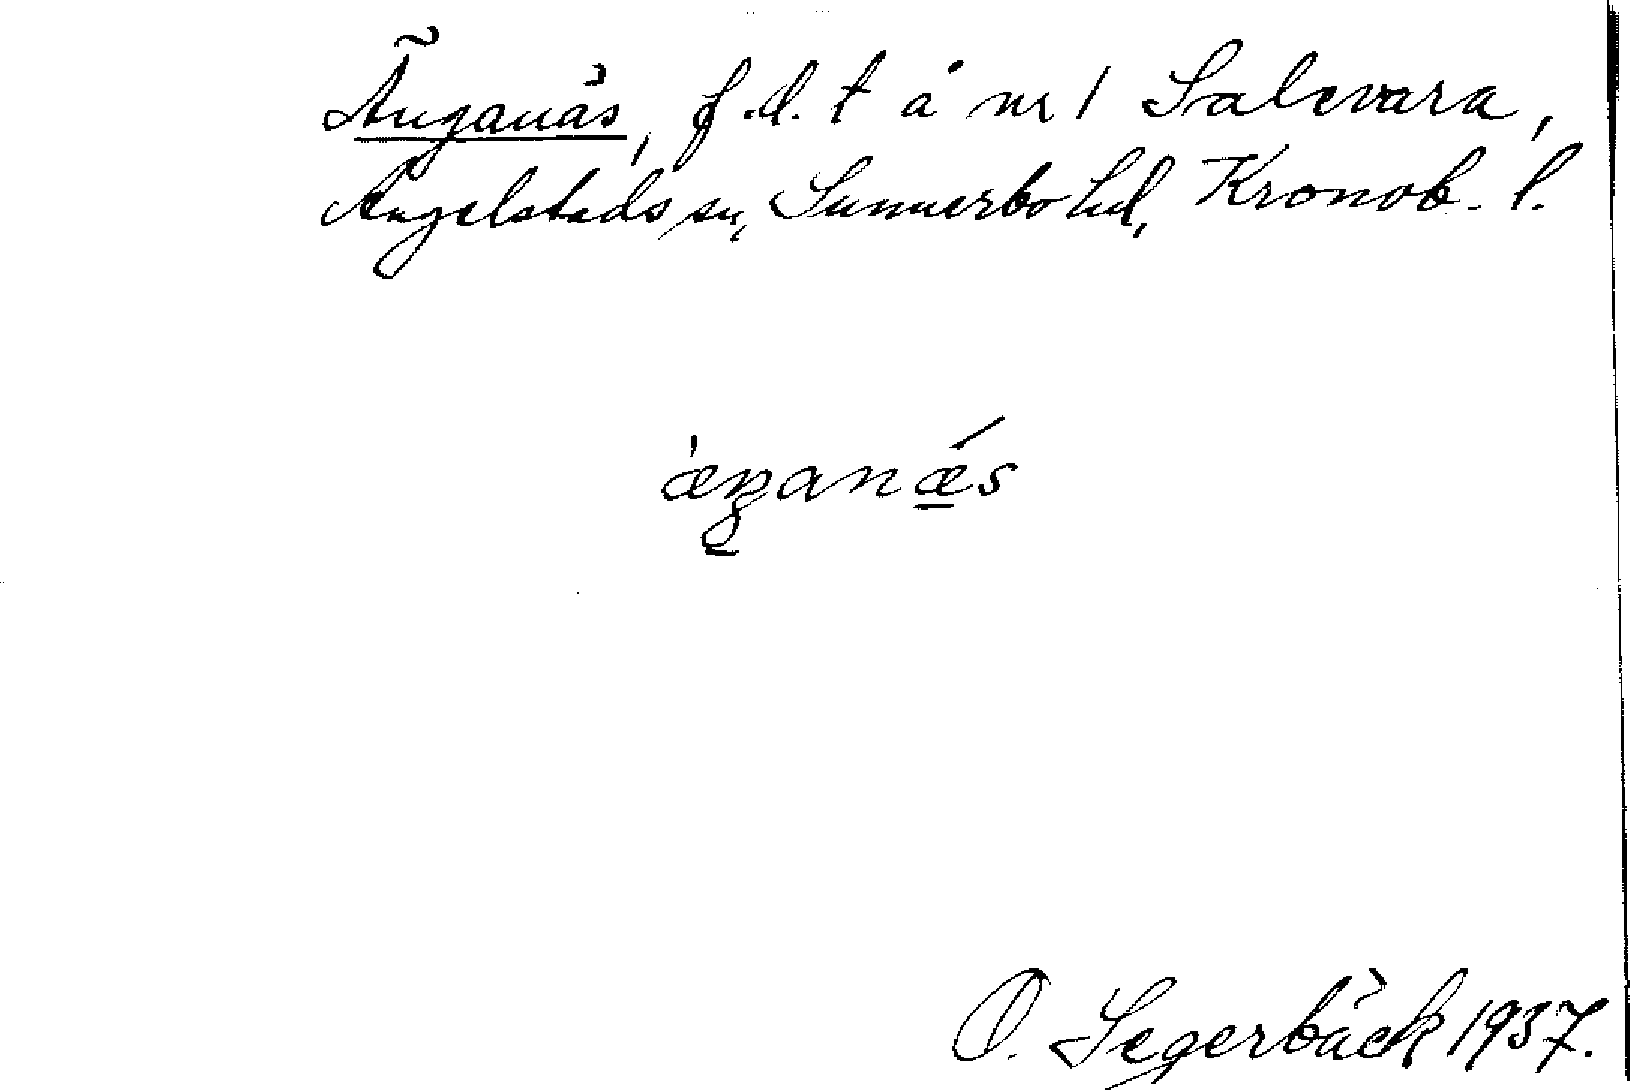 Änganäs, f.d. t å nr 1 Salevara,
Angelstads sn, Sunnerbo hd, Kronob. l.
æŋanæs
O. Segerbäck 1937.